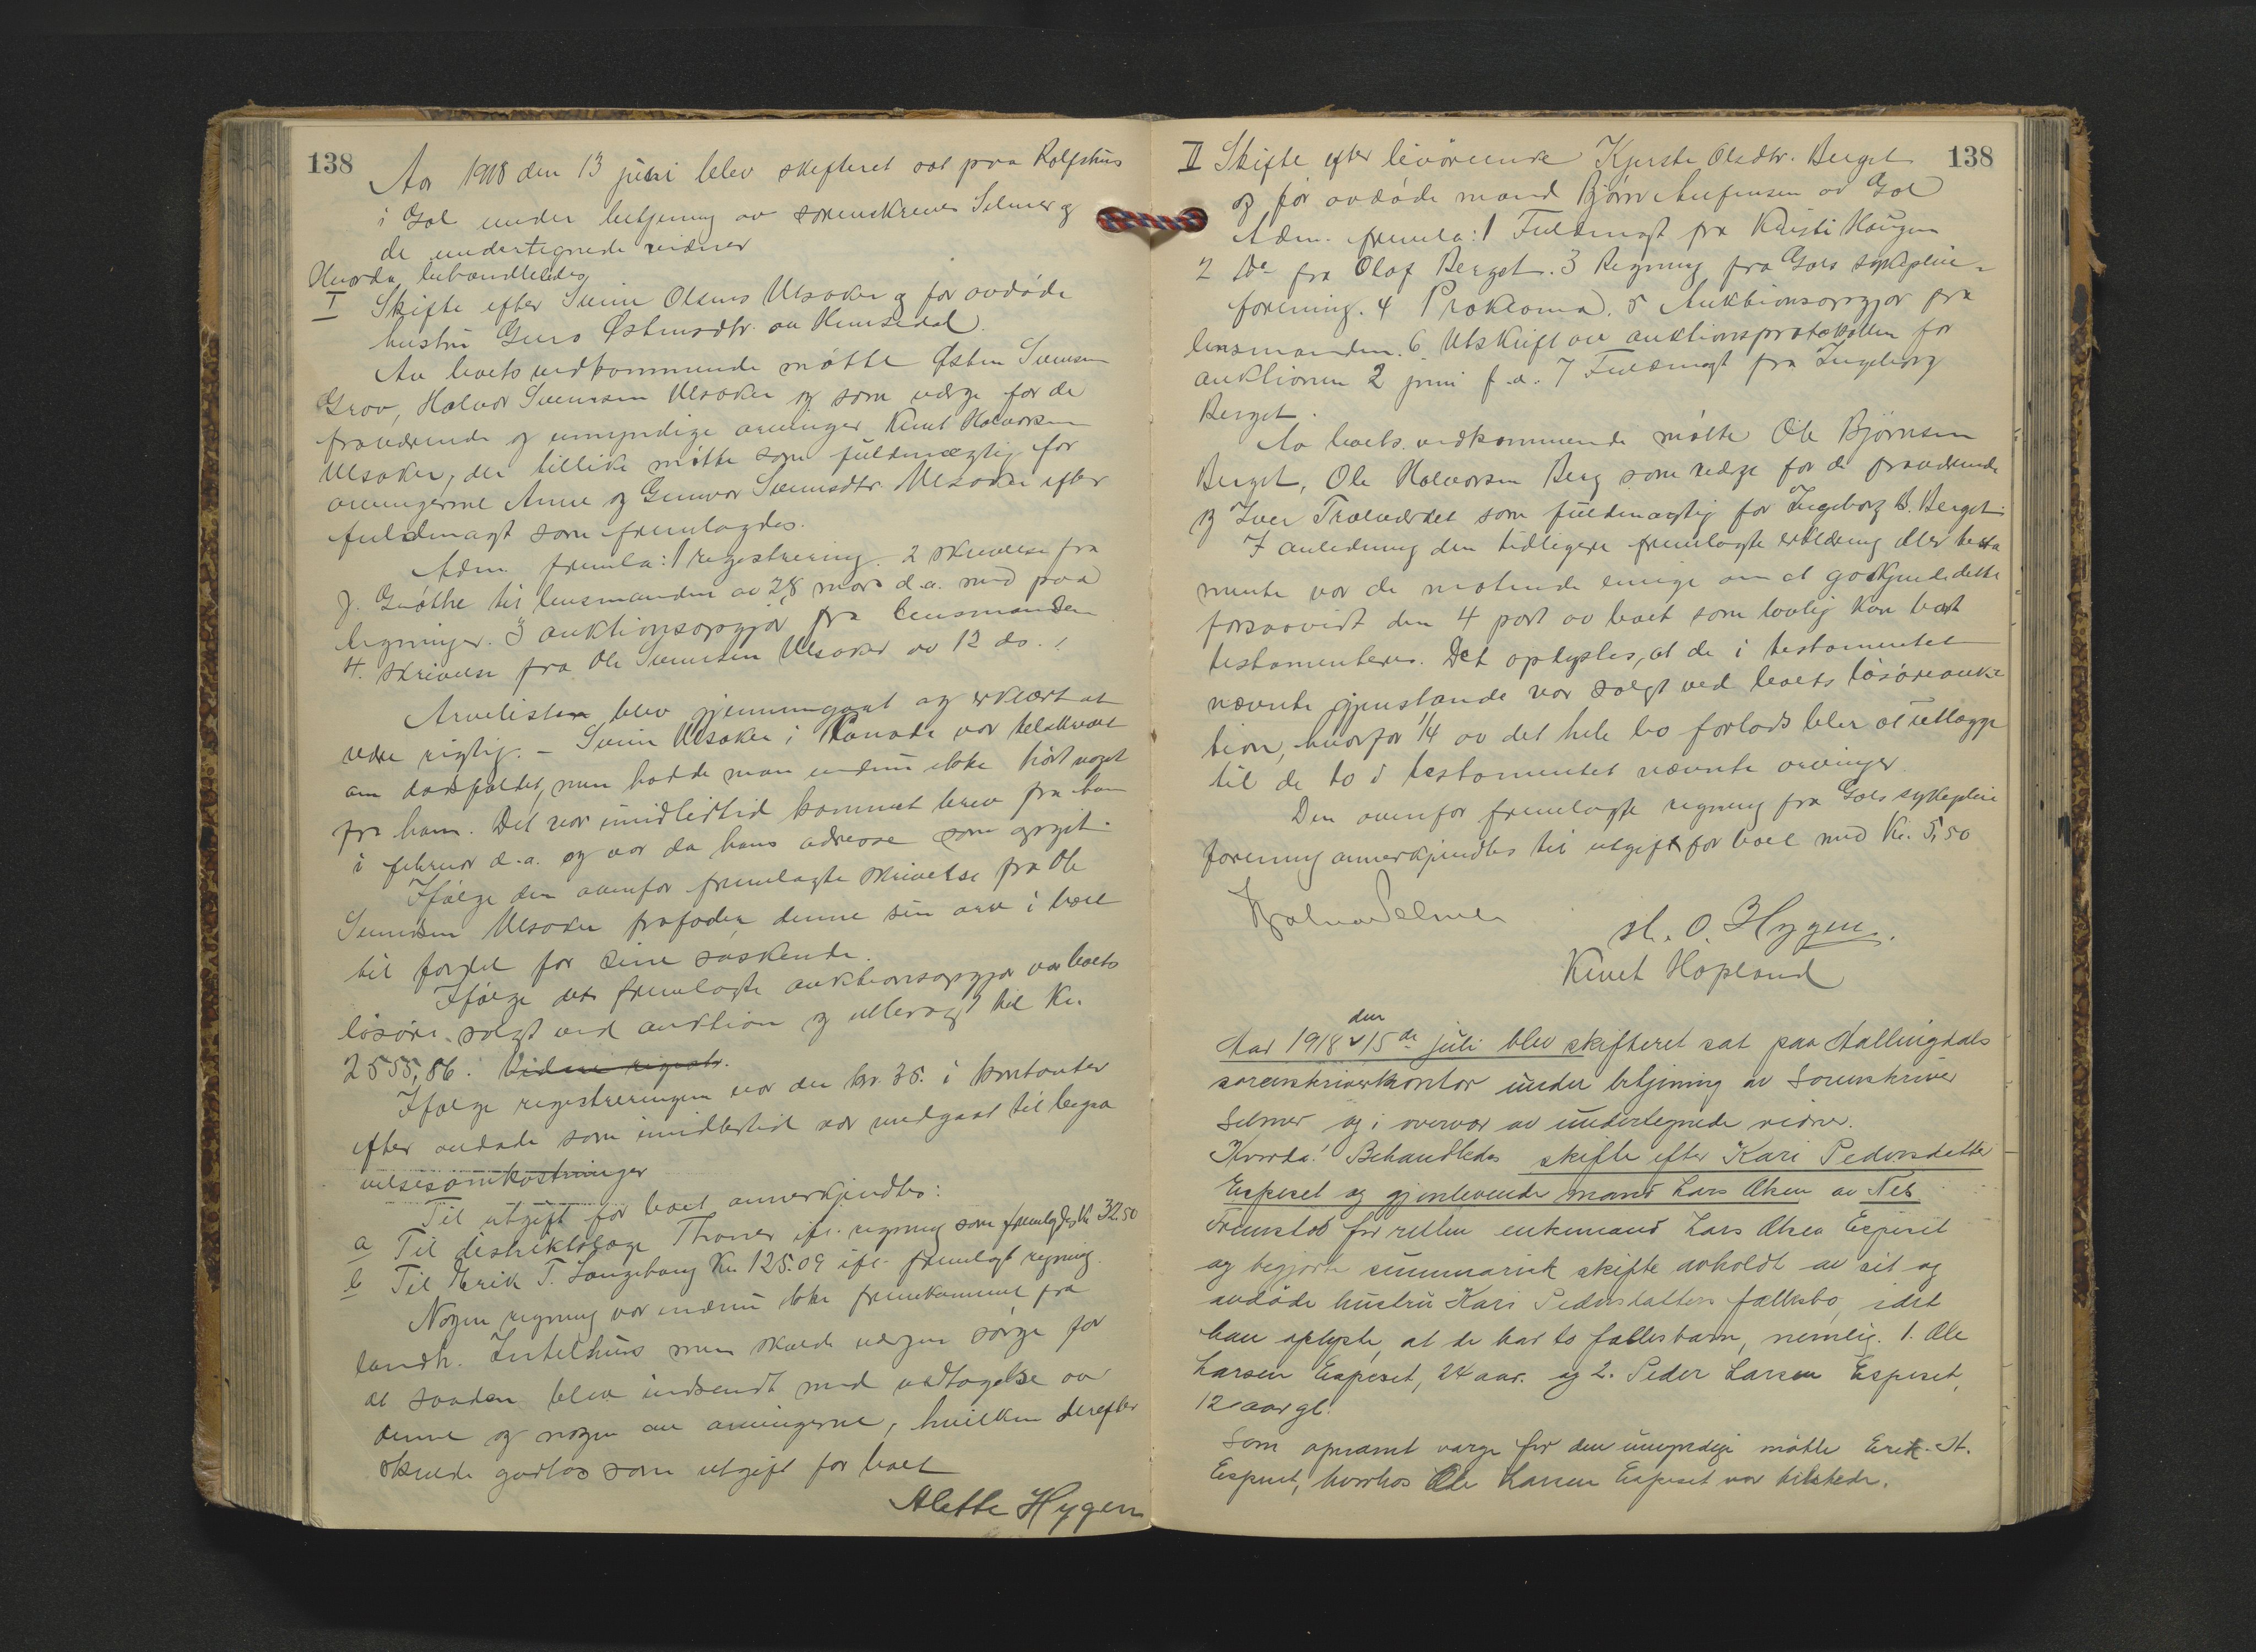 138
Aar 1918 den 13 juli blev skifteret sat paa Rolfshus
i Gol under betjening av sorenskriver Selmer og
de undertegnede vidner
Hvorda behandledes
I Skifte efter Svein Olsens Ulsaker og før avdøde
hustru Guro Østensdtr. av Hemsedal.
Av boets vedkommende møtte Østen Svensen
Grøv, Halvor Svensen Ulsaker og som verge for de
fraværende og umyndige arvinger Knut Halvorsen
Ulsaker, der tillike møtte som fuldmægtig for
arvingerne Anne og Gunvor Svensdtr. Ulsaker efter
fuldmagt som fremlagdes.
Adm. fremla: 1 registrering. 2 skrivelse fra
J. Grøthe til lensmanden av 28 mars d.a. med paa
tegninger. 3 auktionsopgjør fra lensmanden
4. skrivelse fra Ole Svensen Ulsaker av 12 ds.
Arvelisten blev gjennemgaat og erklært at
være rigtig. – Svein Ulsaker i Kanada var tilskrevet
om dødsfaldet, men hadde man endnu ikke hørt noget
fra ham. Det var imidlertid kommet brev fra ham
i februar d.a. og var da hans adresse som opgit.
Ifølge den ovenfor fremlagte skrivelse fra Ole
Svensen Ulsaker frafader denne sin arv i boet
til fordel for sine søskende.
Ifølge det fremlagte auktionsopgjør var boets
løsøre solgt ved auktion og utbragt til Kr.
2555,86. Videre registr.
Ifølge registreringen var der kr. 35. i kontanter
efter avdøde som imidlertid var medgaat til begra
velsesomkostninger
Til utgift for boet anerkjendtes:
a Til distriktslæge Throner ifl. regning som fremlagdes Kr. 32.50
b Til Erik T. Langehaug Kr. 125.09 ifl. fremlagt regning.
Nogen regning var endnu ikke fremkommet fra
landh. Intelhus men skulde vergen sørge for
at saadan blev indsendt med vedtagelse av
denne og nogen av arvingerne, hvilken derefter
skulde godtas som utgift for boet
Alette Hygen
II Skifte efter livørende Kjersti Olsdtr. Berget 138
og før avdøde mand Bjørn Aufinsen av Gol
Adm. fremla: 1 Fuldmagt fra Kristi Haugen
2 Do fra Olaf Berget. 3 Regning fra Gols sykepleie-
forening. 4 Proklama. 5 Auktionsopgjør fra
lensmanden. 6. Utskrift av auktionsprotokollen for
auktionen 2 juni f.a. 7 Fuldmagt fra Ingeborg
Berget.
Av boets vedkommende møtte Ole Bjørnsen
Berget, Ole Halvorsen Berg som verge for de fraværende
og Iver Trælværdet som fuldmægtig for Ingeborg B. Berget.
I anledning den tidligere fremlagte erklæring eller testa
mente var de møtende enige om at godkjende dette
forsaavidt den 4 part av boet som lovlig kan bort
testamenteres. Det oplystes, at de i testamentet
nævnte gjenstande var solgt ved boets løsøreauk-
tion, hvorfor 1/4 av det hele bo forlods blev at utlægge
til de to i testamentet nævnte arvinger.
Den ovenfor fremlagte regning fra Gols sykepleie
forening anerkjendtes til utgift for boet med Kr. 5,50
Hjalmar Selmer
M. O. Hygen.
Knut Hopland
Aar 1918 den 15de juli blev skifteret sat paa Hallingdals
sorenskriverkontor under betjening av Sorenskriver
Selmer og i overvær av undertegnede vidner.
Hvorda: Behandledes skifte efter Kari Pedersdatter
Espeset og gjenlevende mand Lars Olsen av Nes
Fremstod for retten enkemand Lars Olsen Espeset
og begjærte summarisk skifte avholdt av sit og
avdøde hustru Kari Pedersdatters fællesbo, idet
han oplyste, at de har to fællesbarn, nemlig. 1. Ole
Larsen Espeset, 24 aar. og 2. Peder Larsen Espeset,
12 aar gl.
Som opnævnt verge for den umyndige møtte Erik H.
Espeset, hvorhos Ole Larsen Espeset var tilstede.